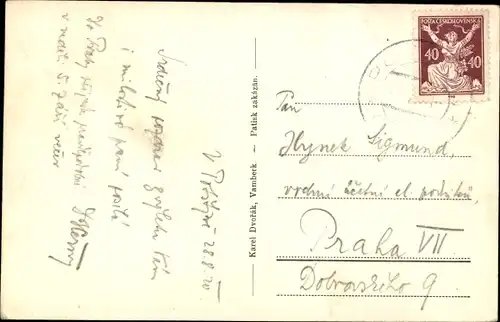 POŠTA ČESKOSLOVENSKÁ
40 40
Pan
Hynek Sigmund,
vrchní účetní el. podniků,
Praha VII
Dobrovského 9.
Karel Dvořák, Vambeck — Patisk zakázán.
28.8.20
Srdečný pozdrav z výletu Vám
i milostivé paní posílá
Do Prahy
v neděli 5. září večer